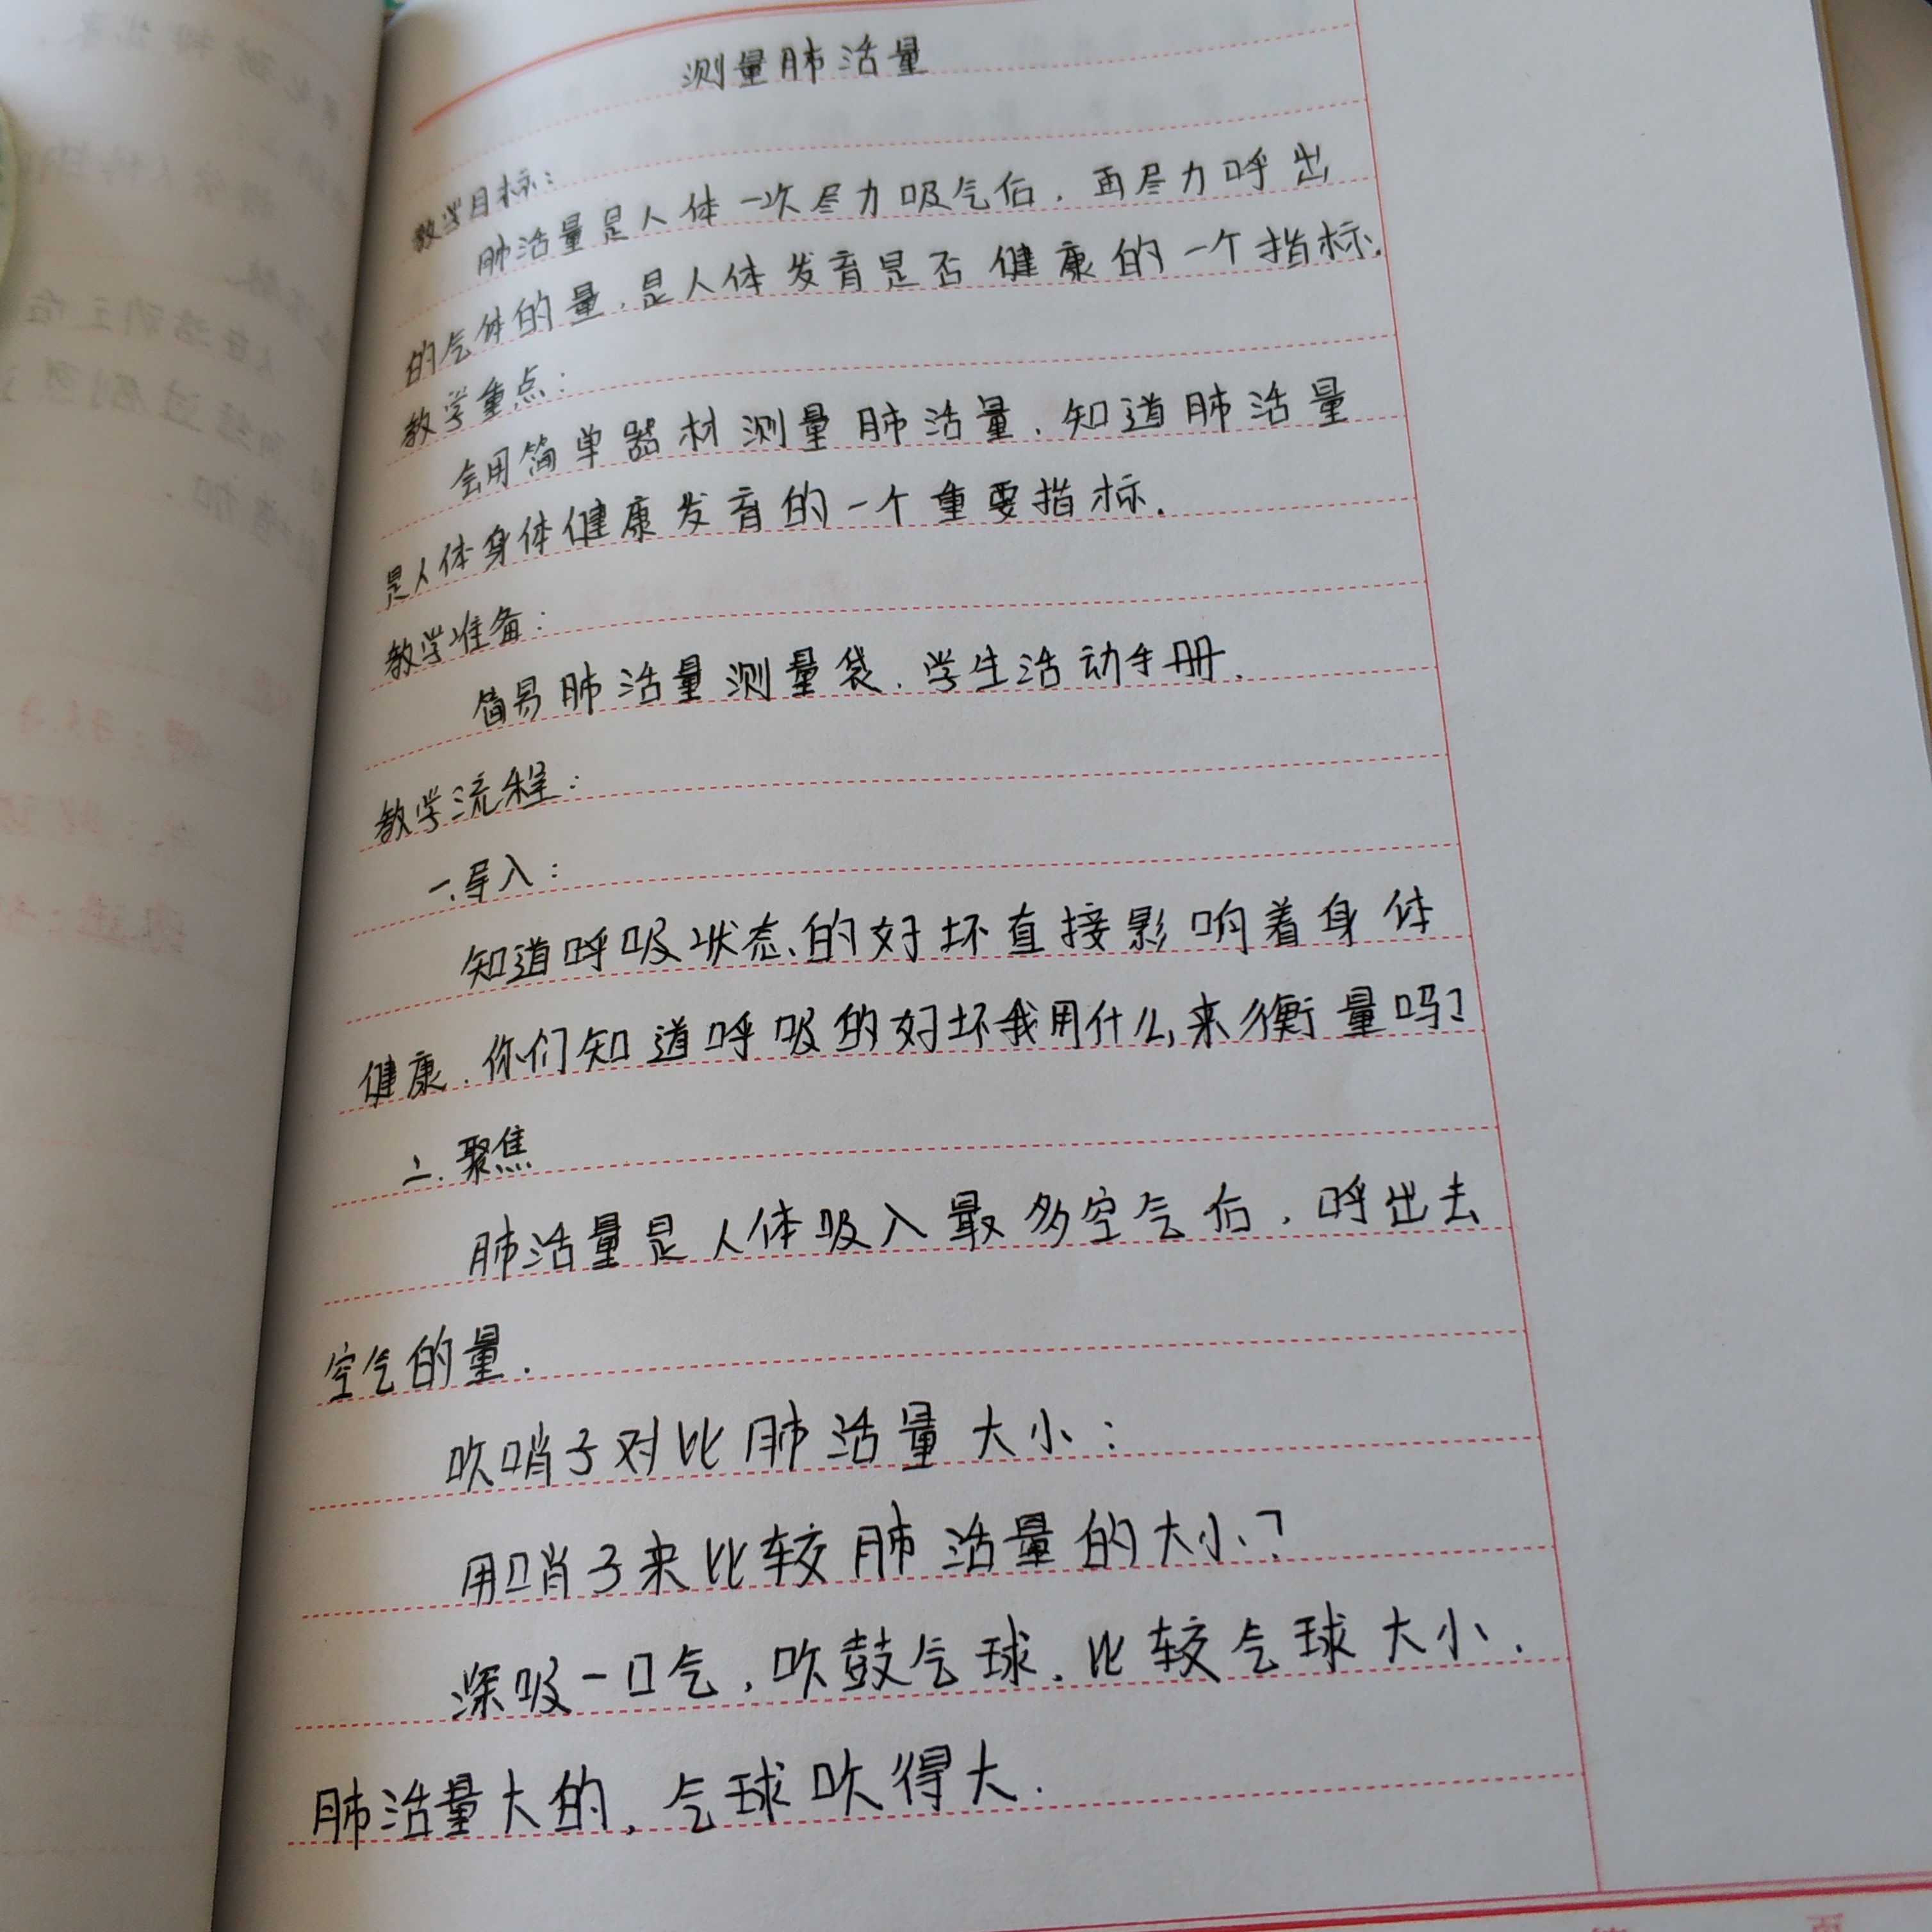 测量肺活量
教学目标:
肺活量是人体一次尽力吸气后,再尽力呼出
的气体的量,是人体发育是否健康的一个指标.
教学重点:
会用简单器材测量肺活量,知道肺活量
是人体身体健康发育的一个重要指标.
教学准备:
简易肺活量测量袋.学生活动手册.
教学流程:
一.导入:
知道呼吸状态的好坏直接影响着身体
健康.你们知道呼吸的好坏我用什么来衡量吗?
二.聚焦
肺活量是人体吸入最多空气后,呼出去
空气的量.
吹哨子对比肺活量大小:
用哨子来比较肺活量的大小?
深吸一口气,吹鼓气球.比较气球大小.
肺活量大的,气球吹得大.